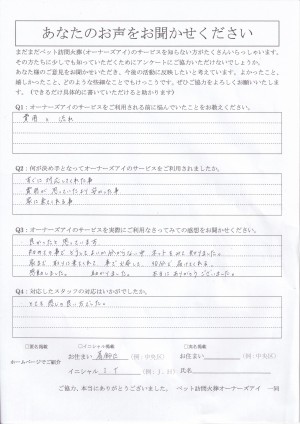 あなたのお声をお聞かせください
まだまだペット訪問火葬(オーナーズアイ)のサービスを知らない方がたくさんいらっしゃいます。
その方たちに少しでも知っていただくためにアンケートにご協力いただけないでしょうか。
あなた様のご意見をお聞かせいただき、今後の活動に反映したいと考えています。よかったこと、
嬉しかったこと、どのような些細なことでもけっこうです。ぜひご協力をよろしくお願いいたしま
す。(できるだけ具体的に書いていただけると助かります)
Q1:オーナーズアイのサービスをご利用される前に悩んでいたことをお教えください。
費用と流れ
Q2:何が決め手となってオーナーズアイのサービスをご利用されましたか。
すぐに対応してくれた事
費用が思っていたより安かった事
家に来てくれる事
Q3:オーナーズアイのサービスを実際にご利用なさってみての感想をお聞かせください。
良かったと思っています
初めての事でどうしてよいか分からない中
ネットで
知りました。
家まで
来てくれて
火葬して
くれる
感動しました。
助かりました。
本当にありがとうございました。
Q4:対応したスタッフの対応はいかがでしたか。
とても感じの良い方でした。
□匿名掲載 □イニシャル掲載 □実名掲載
ホームページでご紹介
お住まい 葛飾区 (例:中央区) お住まい (例:中央区)
イニシャル (例:J.H) 氏名
ご協力、本当にありがとうございました。 ペット訪問火葬オーナーズアイ 一同